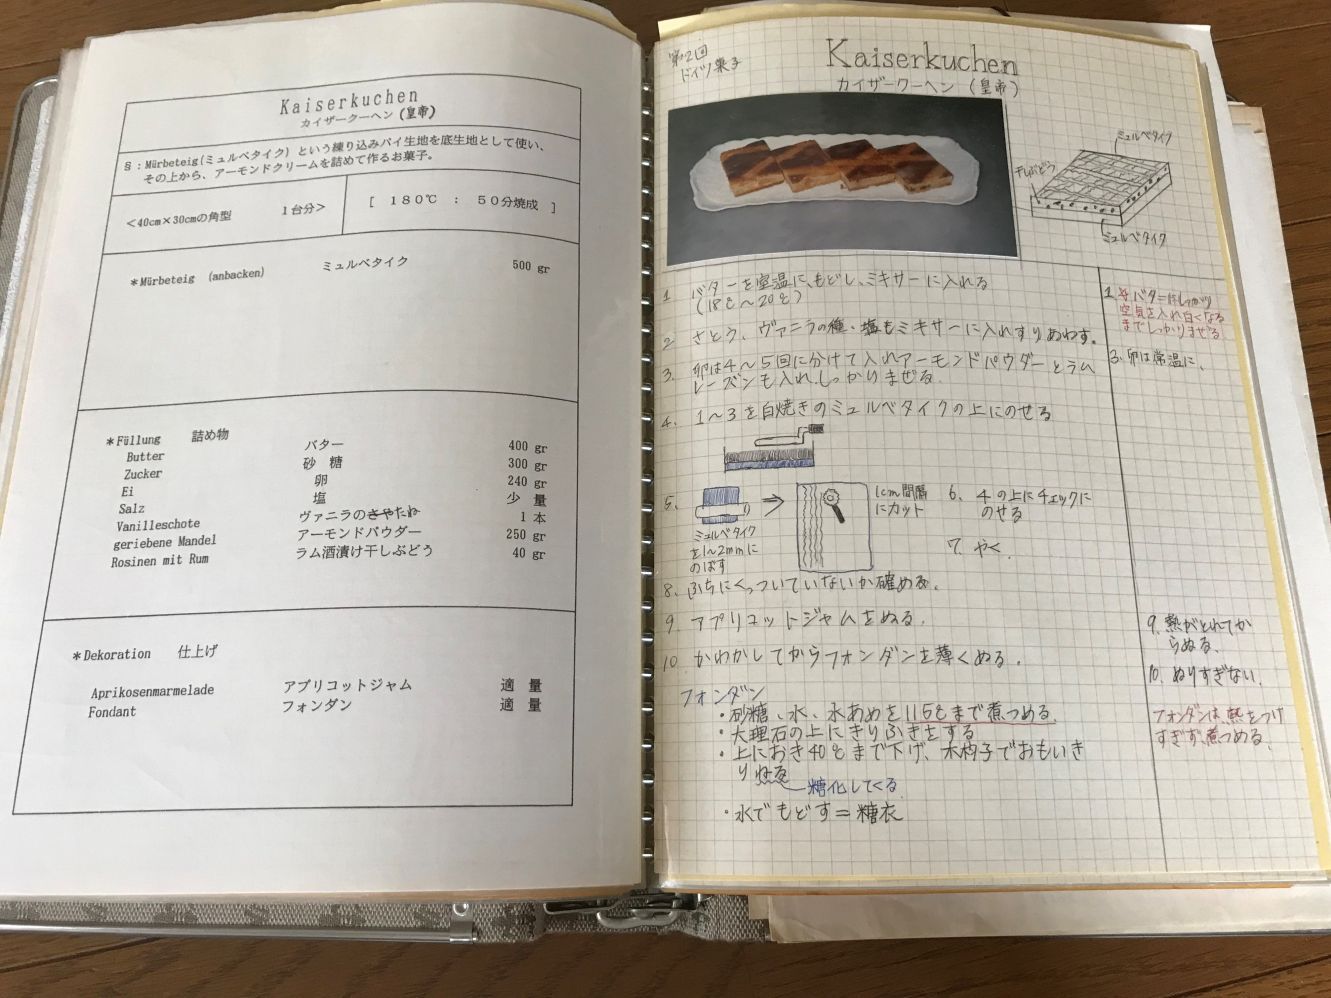 Kaiserkuchen
カイザークーヘン (皇帝)
§：Mürbeteig(ミュルベタイク) という練り込みパイ生地を底生地として使い、
その上から、アーモンドクリームを詰めて作るお菓子。
<40cm×30cmの角型 1台分>
[ 180℃ ： 50分焼成 ]
＊Mürbeteig (anbacken) ミュルベタイク 500 gr
＊Füllung 詰め物
Butter バター 400 gr
Zucker 砂糖 300 gr
Ei 卵 240 gr
Salz 塩 少量
Vanilleschote ヴァニラのさやたね 1本
geriebene Mandel アーモンドパウダー 250 gr
Rosinen mit Rum ラム酒漬け干しぶどう 40 gr
＊Dekoration 仕上げ
Aprikosenmarmelade アプリコットジャム 適量
Fondant フォンダン 適量
第2回
ドイツ菓子
Kaiserkuchen
カイザークーヘン (皇帝)
ミュルベタイク
干しぶどう
ミュルベタイク
1 バターを室温にもどし、ミキサーに入れる
(18℃～20℃)
2 さとう、ヴァニラの種、塩もミキサーに入れすりあわす。
3. 卵は4～5回に分けて入れアーモンドパウダーとラム
レーズンも入れしっかりまぜる.
4. 1～3を白焼きのミュルベタイクの上にのせる
5.
ミュルベタイク
を1～2mmに
のばす
1cm間隔
にカット
6. 4の上にチェックに
のせる
7. やく.
8. ふちにくっついていないか確める.
9. アプリコットジャムをぬる.
10. かわかしてからフォンダンを薄くぬる.
フォンダン
・砂糖、水、水あめを115℃まで煮つめる.
・大理石の上にきりふきをする
・上におき40℃まで下げ、木杓子でおもいき
り ねる
糖化してくる.
・水でもどす＝糖衣
1. ☆バターはしっかり
空気を入れ白くなる
までしっかりまぜる
3. 卵は常温に.
9. 熱がとれてか
らぬる.
10. ぬりすぎない.
フォンダンは、熱をつけ
すぎず、煮つめる.